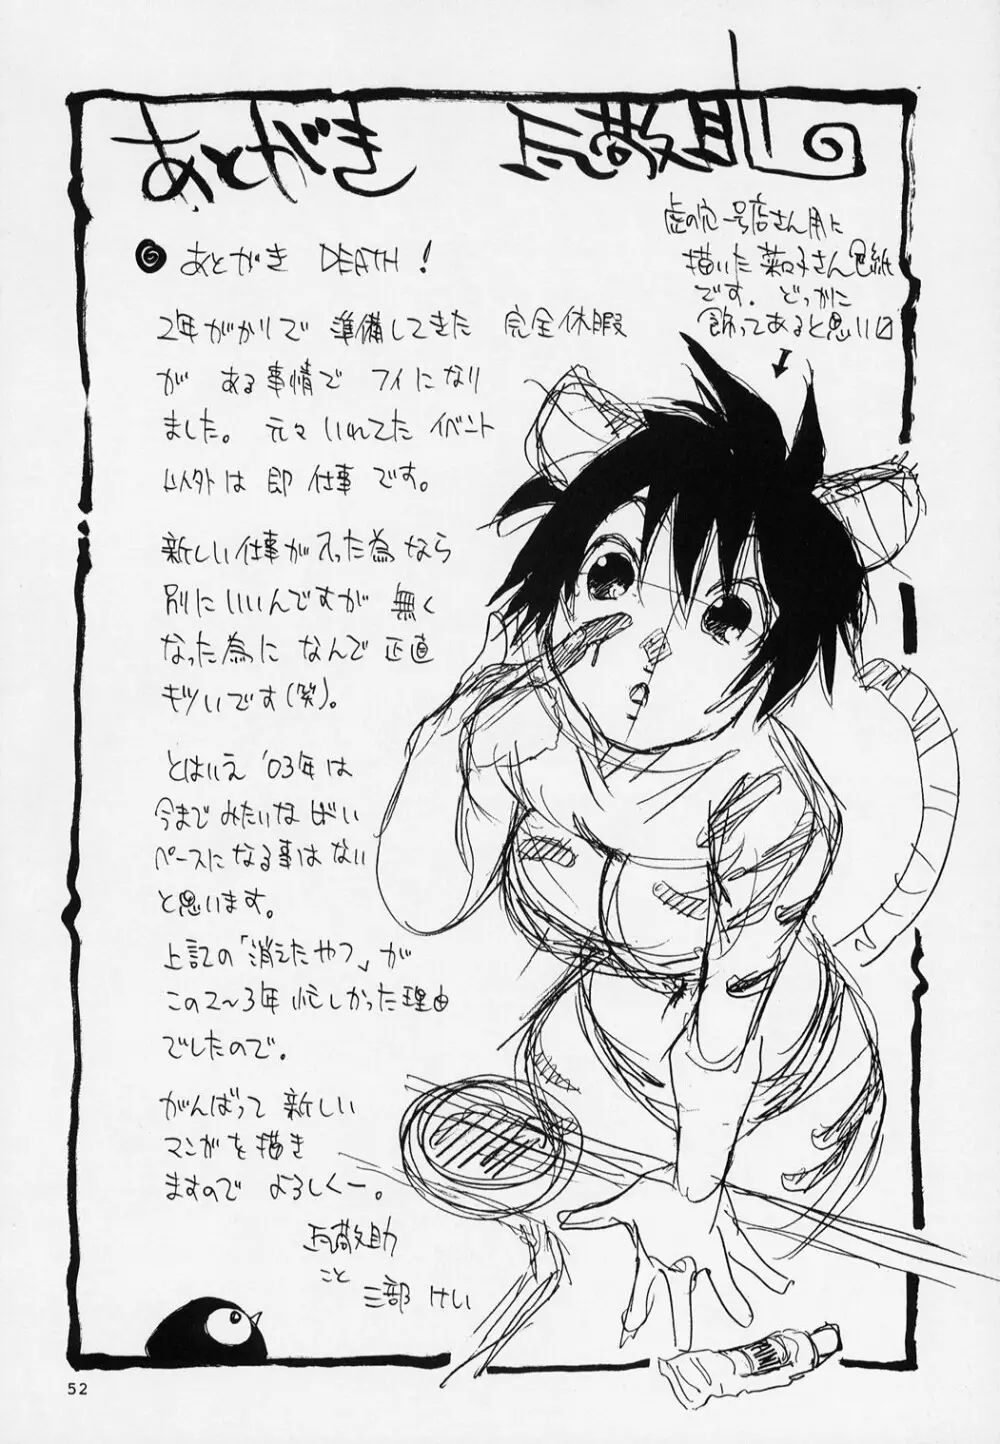 あとがき 瓦敬助の
虎の穴一号店さん用に
描いた菜々子さん色紙
です。どっかに
飾ってあると思い〼
あとがき DEATH!
2年がかりで 準備してきた 完全休暇
が ある事情で フイになり
ました。元々 いれてた イベント
以外は 即 仕事 です。
新しい仕事が入った為 なら
別に いいんですが 無く
なった為に なんで 正直
キツいです(笑)。
とはいえ '03年は
今まで みたいな ばい
ペースに なる事は ない
と思います。
上記の「消えたやつ」が
この2〜3年 忙しかった理由
でしたので。
がんばって 新しい
マンガを 描き
ますので よろしくー。
瓦敬助
こと
三部 けい
52